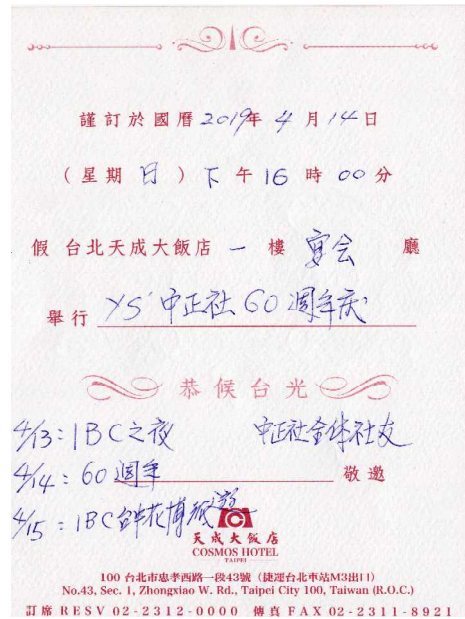 謹訂於國曆2019年4月14日
（星期日）下午16時00分
假 台北天成大飯店 一 樓 宴会 廳
舉行 YS'中正社60週年庆
恭候台光
4/13：IBC之夜 中正社全体社友
4/14：60週年 敬邀
4/15：IBC 花博
天成大飯店
COSMOS HOTEL
TAIPEI
100 台北市忠孝西路一段43號（捷運台北車站M3出口）
No.43, Sec. 1, Zhongxiao W. Rd., Taipei City 100, Taiwan (R.O.C.)
訂席 RESV 02-2312-0000 傳真 FAX 02-2311-8921